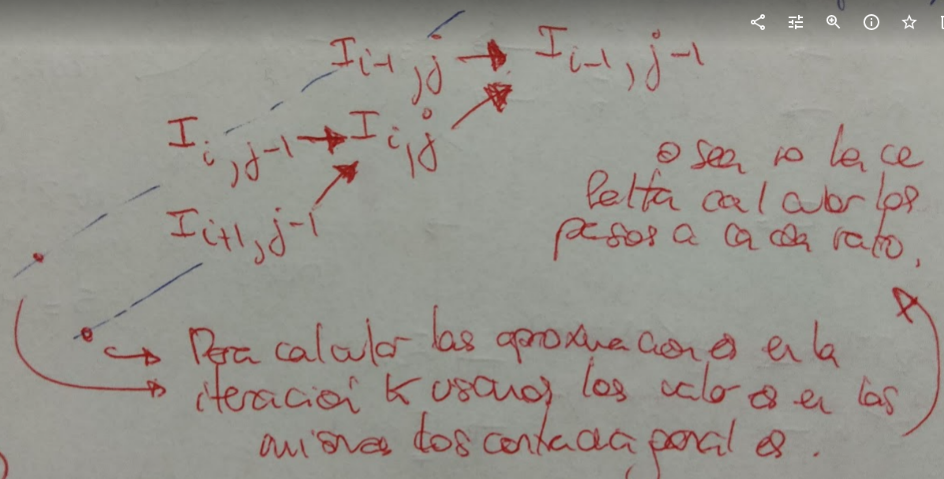 I i-1,j → I i-1,j-1
I i,j-1 → I i,j
I i+1,j-1
o sea no hace
falta calcular los
pesos a cada rato.
Para calcular las aproximaciones en la
iteración K usamos los valores en las
mismas dos contradiagonales.